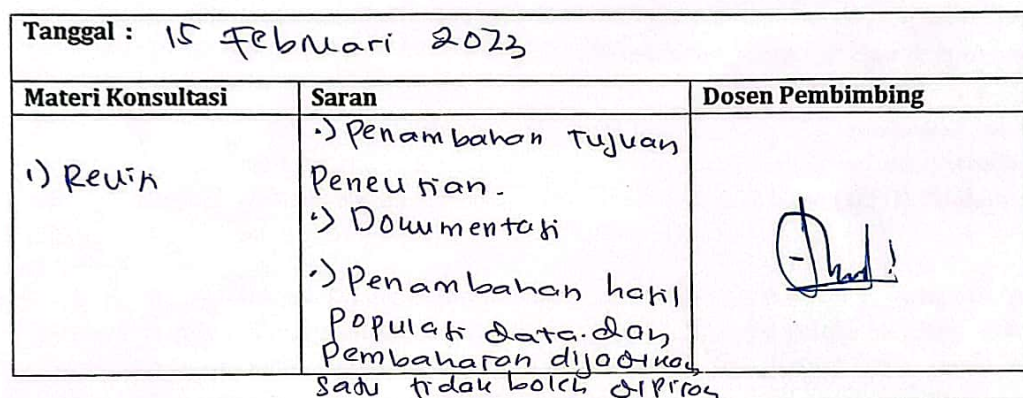 Tanggal : 15 Februari 2023
Materi Konsultasi Saran Dosen Pembimbing
1) Revisi
•) Penambahan Tujuan
Penelitian.
•) Dokumentasi
•) Penambahan hasil
Populasi data dan
Pembahasan dijadikan
satu tidak boleh dipisah